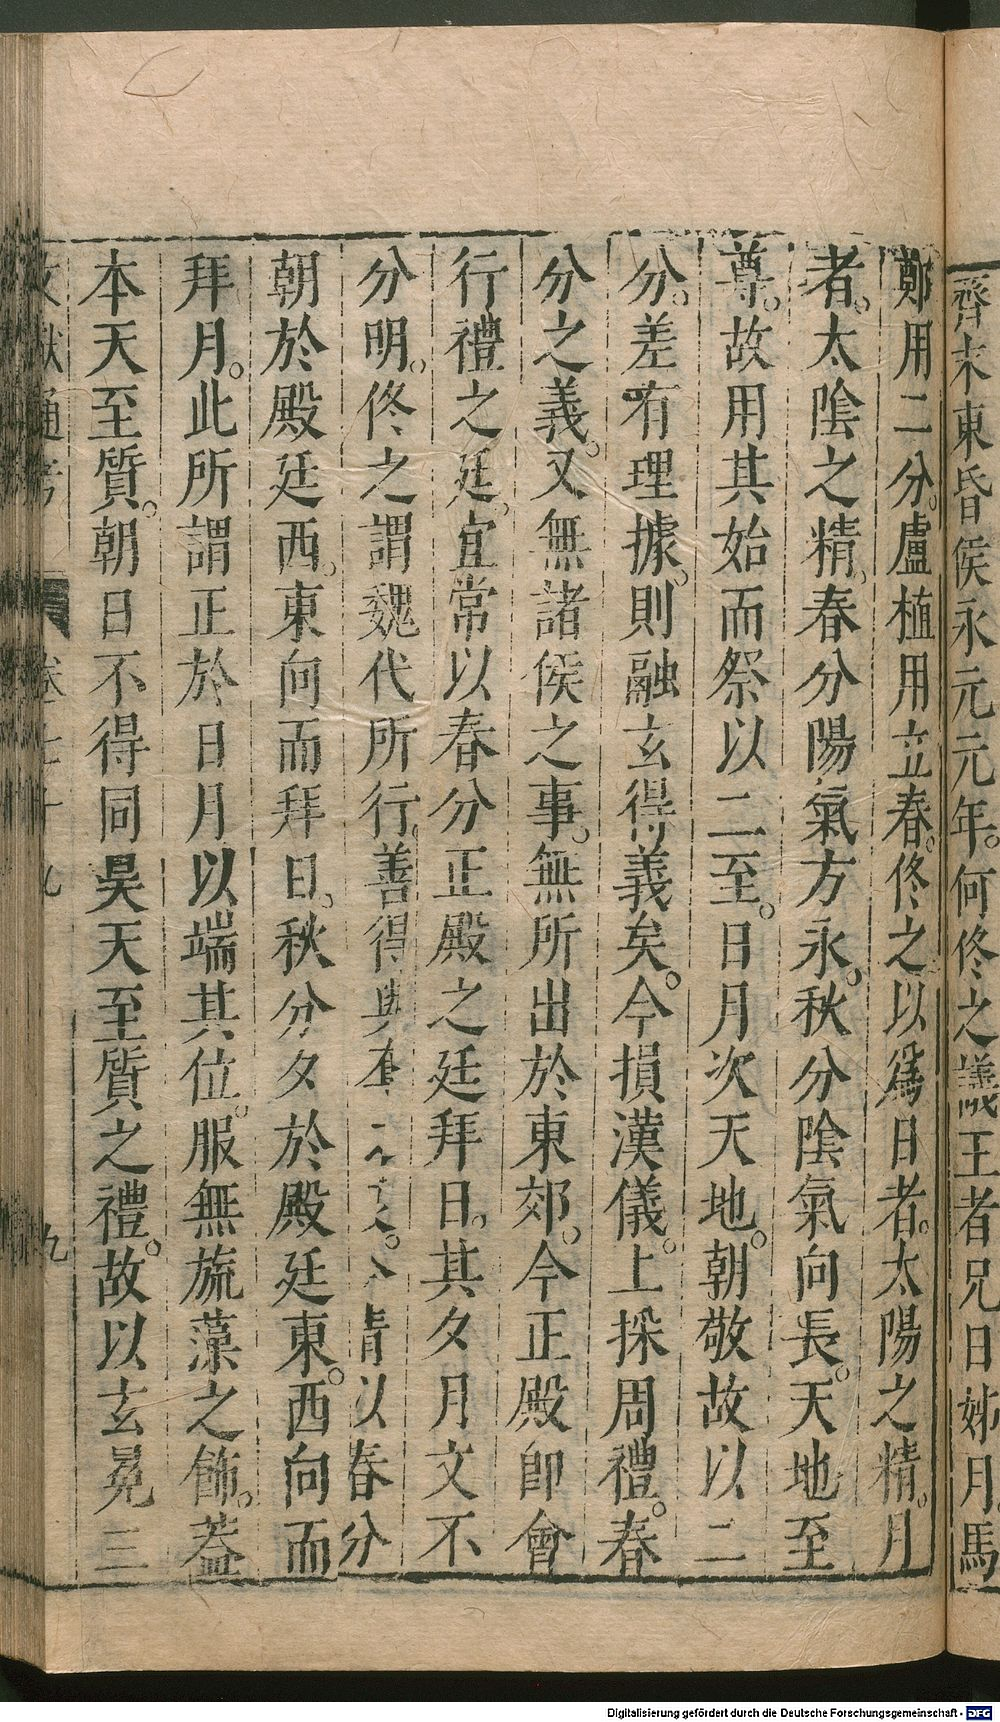 齊末東昏侯永元元年。何佟之議王者兄日姊月馬
鄭用二分。盧植用立春。佟之以爲日者。太陽之精。月
者。太陰之精。春分陽氣方永。秋分陰氣向長。天地至
尊。故用其始而祭以二至。日月次天地。朝敬故以二
分。差有理據。則融玄得義矣。今損漢儀。上採周禮。春
分之義。又無諸侯之事。無所出於東郊。今正殿即會
行禮之廷。宜常以春分正殿之廷拜日。其夕月文不
分明。佟之謂魏代所行。善得與奪情以春分
朝於殿廷西。東向而拜日。秋分夕於殿廷東。西向而
拜月。此所謂正於日月以端其位。服無旒藻之飾。蓋
本天至質。朝日不得同昊天至質之禮。故以玄冕三
文獻通考 卷七十九 九
Digitalisierung gefördert durch die Deutsche Forschungsgemeinschaft - DFG